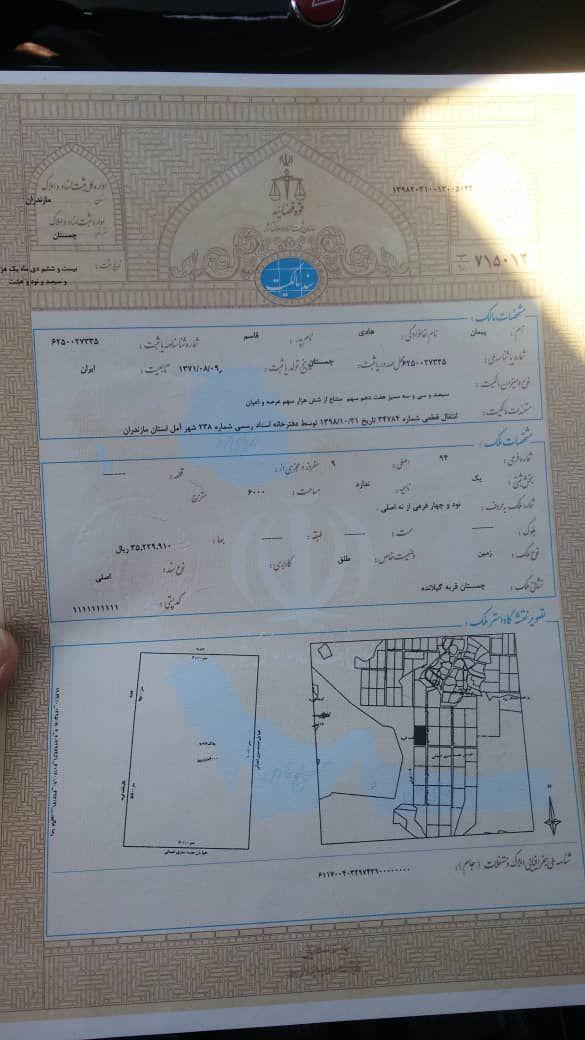 اداره کل ثبت اسناد و املاک
استان
مازندران
اداره ثبت اسناد و املاک
چمستان
قوه قضائیه
سازمان ثبت اسناد و املاک کشور
۷۱۵۰۱۳
تاریخ ثبت:
بیست و ششم دی ماه یک هزار
و سیصد و نود و هشت
سند مالکیت
مشخصات مالک:
نام: پیمان نام خانوادگی: هادی نام پدر: قاسم شماره شناسنامه یا ثبت: ۶۲۵۰۰۲۷۳۳۵
شماره یا شناسه ملی: ۶۲۵۰۰۲۷۳۳۵ محل صدور یا ثبت: چمستان تاریخ تولد یا ثبت: ۱۳۷۱/۰۸/۰۹ تابعیت: ایران
نوع و میزان مالکیت: سیصد و سی و سه ممیز هفت دهم سهم مشاع از شش هزار سهم عرصه و اعیان
مستندات مالکیت: انتقال قطعی شماره ۳۴۷۸۴ تاریخ ۱۳۹۸/۱۰/۲۱ توسط دفترخانه اسناد رسمی شماره ۲۳۸ شهر آمل استان مازندران
مشخصات ملک:
شماره فرعی: ۹۴ اصلی: ۹ مفروز و مجزی از: قطعه:
بخش ثبتی: یک ناحیه: ندارد مساحت: ۶۰۰۰ مترمربع
شماره ملک به حروف: نود و چهار فرعی از نه اصلی .
بلوک: سمت: طبقه: بها: ۳۵,۲۲۹,۹۱۰ ریال
نوع ملک: زمین وضعیت خاص: طلق کاربری: نوع سند: اصلی
نشانی ملک: چمستان قریه گیلانده کدپستی: ۱۱۱۱۱۱۱۱۱۱
تصویر نقشه کاداستر ملک:
شناسه ملی جغرافیایی املاک و مستغلات (جام):